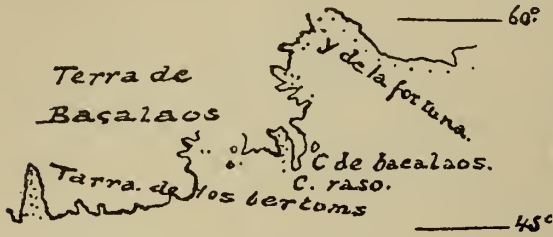 60°
y de la fortuna.
Terra de
Baçalaos
C de bacalaos.
C. raso.
Tarra. de los bertoms
45°